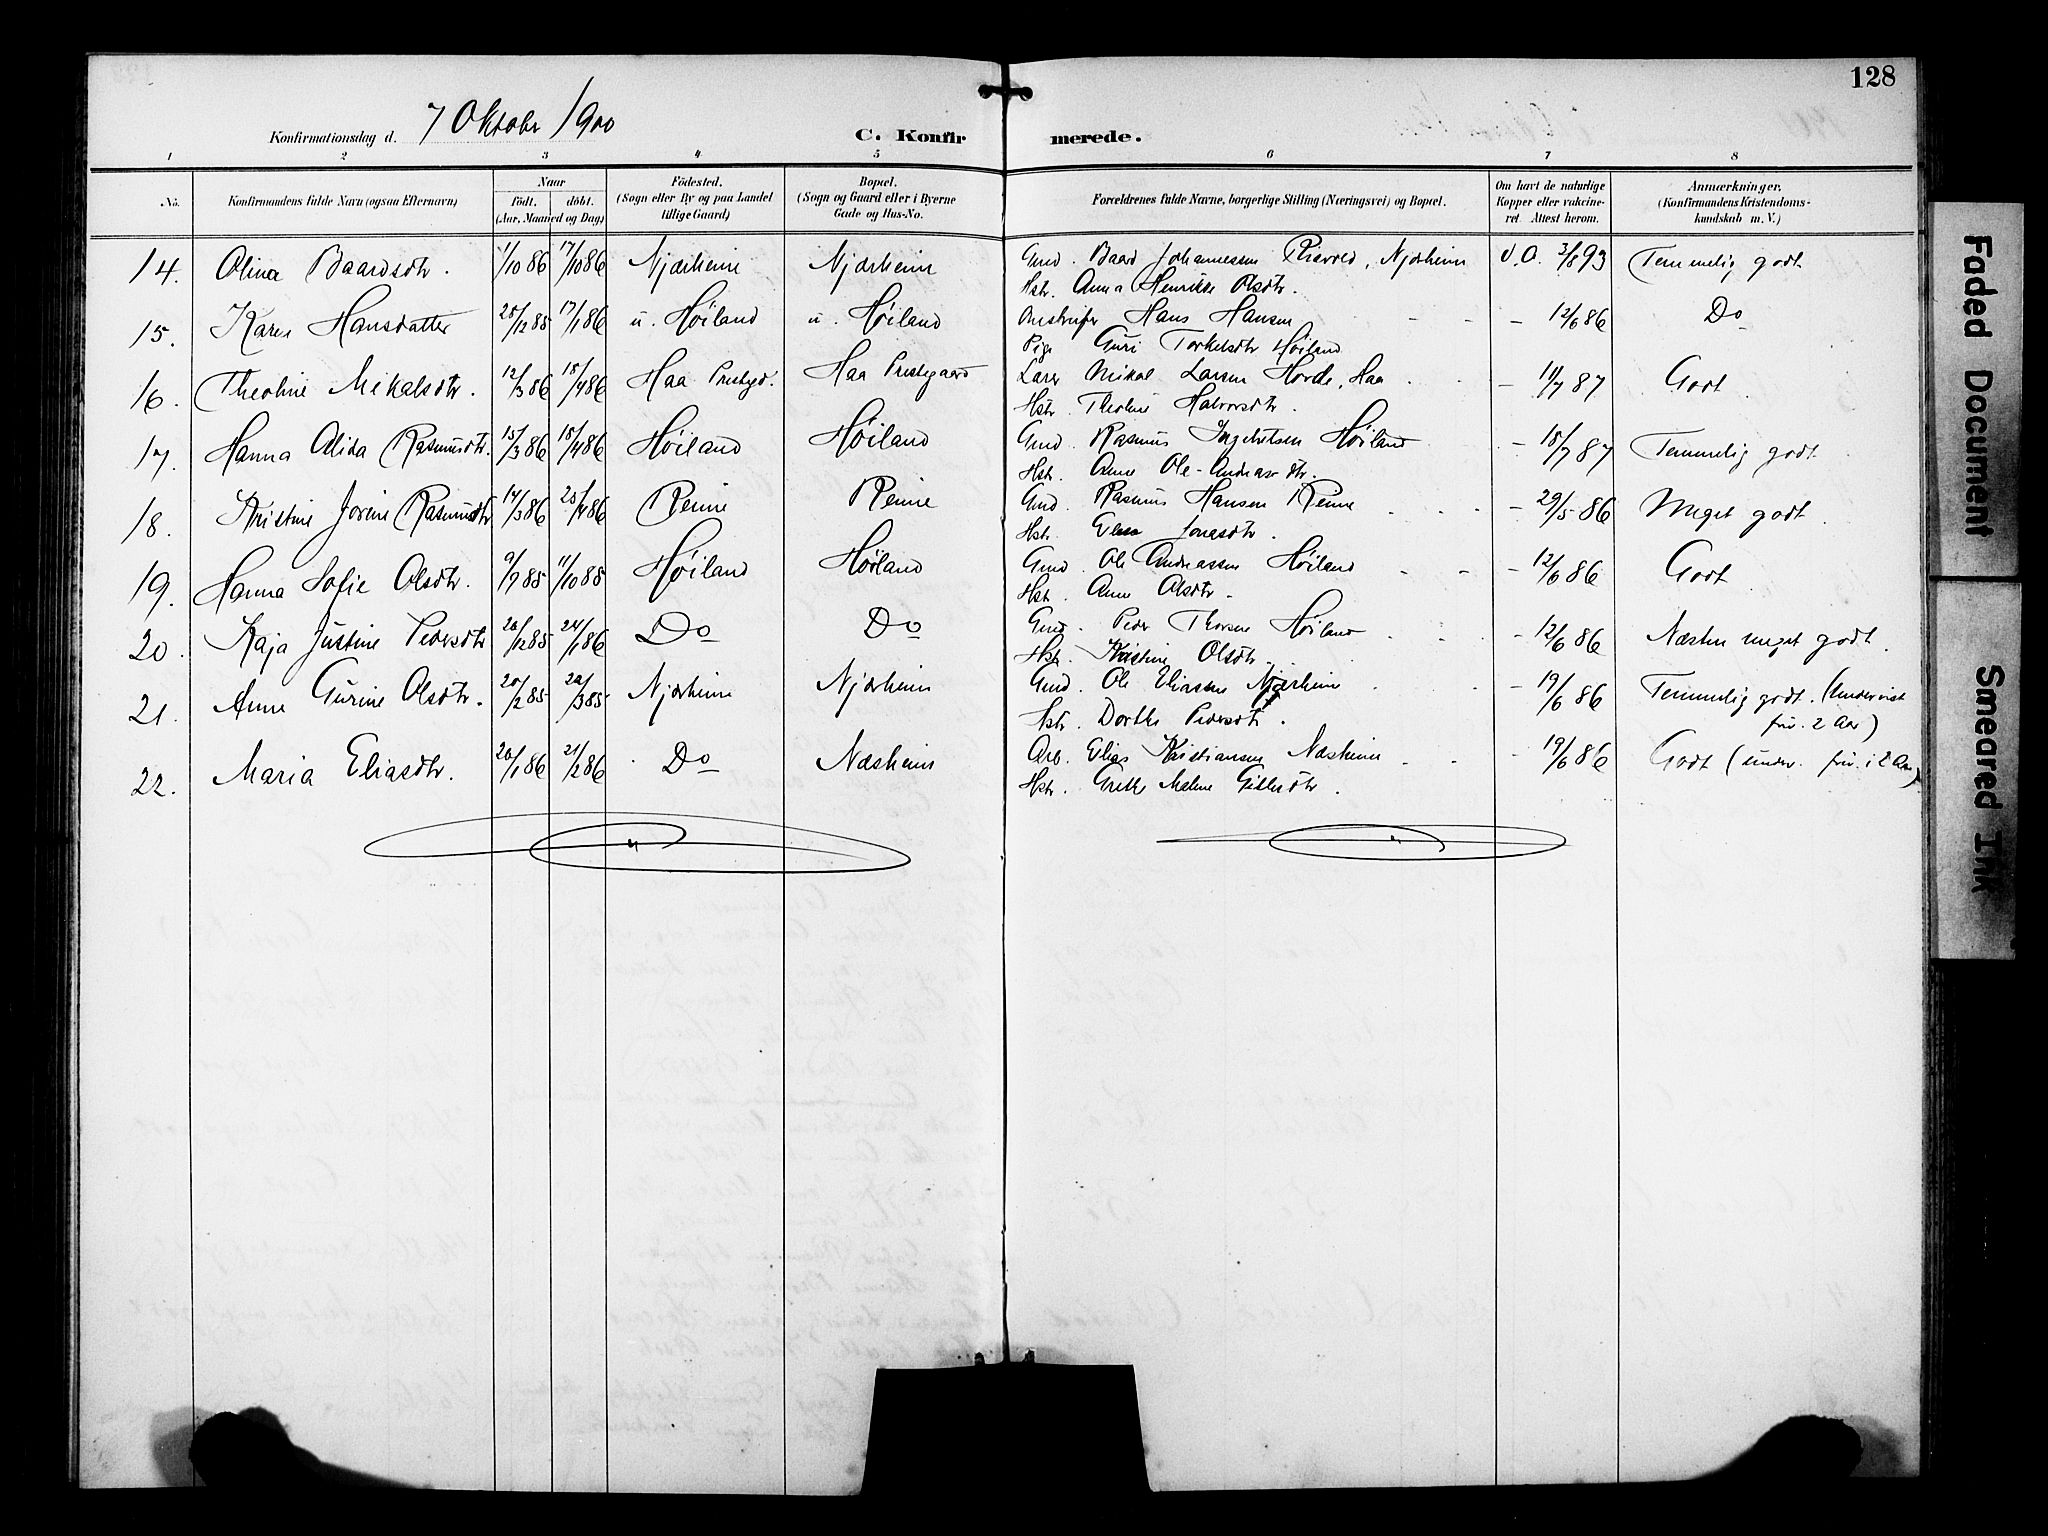 128
Konfirmationsdag d. 7 Oktober 1900
C. Konfirmerede.
1 2 3 4 5 6 7 8
No. Konfirmandens fulde Navn (ogsaa Efternavn) Naar født. døbt. (Aar, Maaned og Dag) Fødested. (Sogn eller By og paa Landet tillige Gaard) Bopæl. (Sogn og Gaard eller i Byerne Gade og Hus-No. Forældrenes fulde Navne, borgerlige Stilling (Næringsvei) og Bopæl. Om havt de naturlige Kopper eller vakcineret. Attest herom. Anmærkninger. (Konfirmandens Kristendomskundskab m. V.)
14. Olina Baardsdtr. 1/10 86 17/10 86 Njærheim Njærheim Gmd. Baard Johannessen, Njærheim v. A. 3/8 93 Temmelig godt
Hstr. Anna Henrikke Olsdtr.
15. Karen Hansdatter 25/12 85 17/1 86 u. Høiland u. Høiland Hans Hansen - 12/6 86 Do
Pige Guri Torkelsdtr Høiland
16. Theoline Mikalsdtr. 12/3 86 18/4 86 Haa Prestegd. Haa Prestegaard Lærer Mikal Larsen Hovde, Haa - 11/7 87 Godt
Hstr. Theoline Halvorsdtr.
17. Hanna Alida Rasmusdtr. 15/3 86 18/4 86 Høiland Høiland Gmd. Rasmus Ingebretsen Høiland - 18/7 87 Temmelig godt
Hstr. Anne Ole-Andreasdtr.
18. Kristine Jorine Rasmusdtr 14/3 86 25/4 86 Reime Reime Gmd. Rasmus Hansen Reime - 29/5 86 Meget godt
Hstr. Elen Jonasdtr.
19. Hanna Sofie Olsdtr. 9/7 85 11/10 85 Høiland Høiland Gmd. Ole Andreassen Høiland - 12/6 86 Godt
Hstr. Anne Olsdtr.
20. Kaja Justine Pedersdtr 20/12 85 24/1 86 Do Do Gmd. Peder Thorsen Høiland - 12/6 86 Næsten meget godt.
Hstr. Kristine Olsdtr.
21. Anne Gurine Olsdtr. 20/2 85 22/3 85 Njærheim Njærheim Gmd. Ole Eliassen Njærheim - 19/6 86 Temmelig godt. (Undervist
Hstr. Dorthe Pedersdtr. priv. 2 Aar)
22. Maria Eliasdtr. 20/1 86 21/2 86 Do Næsheim Arb. Elias Kristiansen Næsheim - 19/6 86 Godt (underv. priv. i 2 Aar)
Hstr. Grethe Malene Gitlesdtr.
Faded Document
Smeared Ink